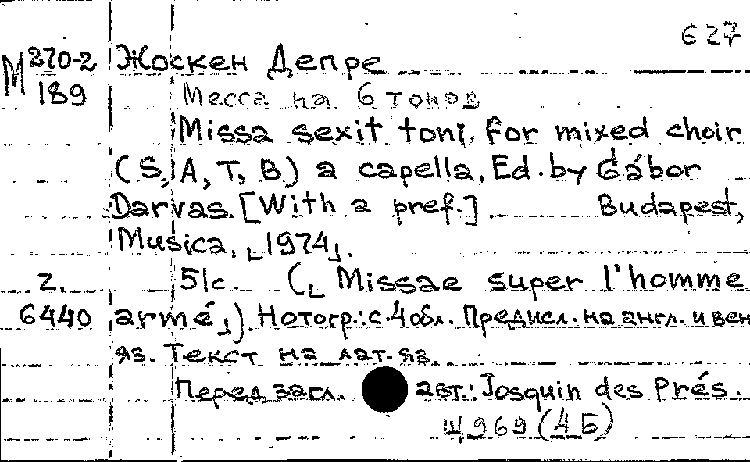 627
М 270-2 Жоскен Депре
189 Месса на 6 тонов
Missa sexit toni, for mixed choir
(S, A, T, B) a capella. Ed. by Gábor
Darvas. [With a pref.] Budapest,
Musica, ⌊1974⌋.
Z. 51c. (⌊Missae super l'homme
6440 armé⌋). Нотогр.: с. 4 обл. Предисл. на англ. и вен
яз. Текст на лат. яз.
Перед загл. авт.: Josquin des Prés.
Ш969 (4Б)